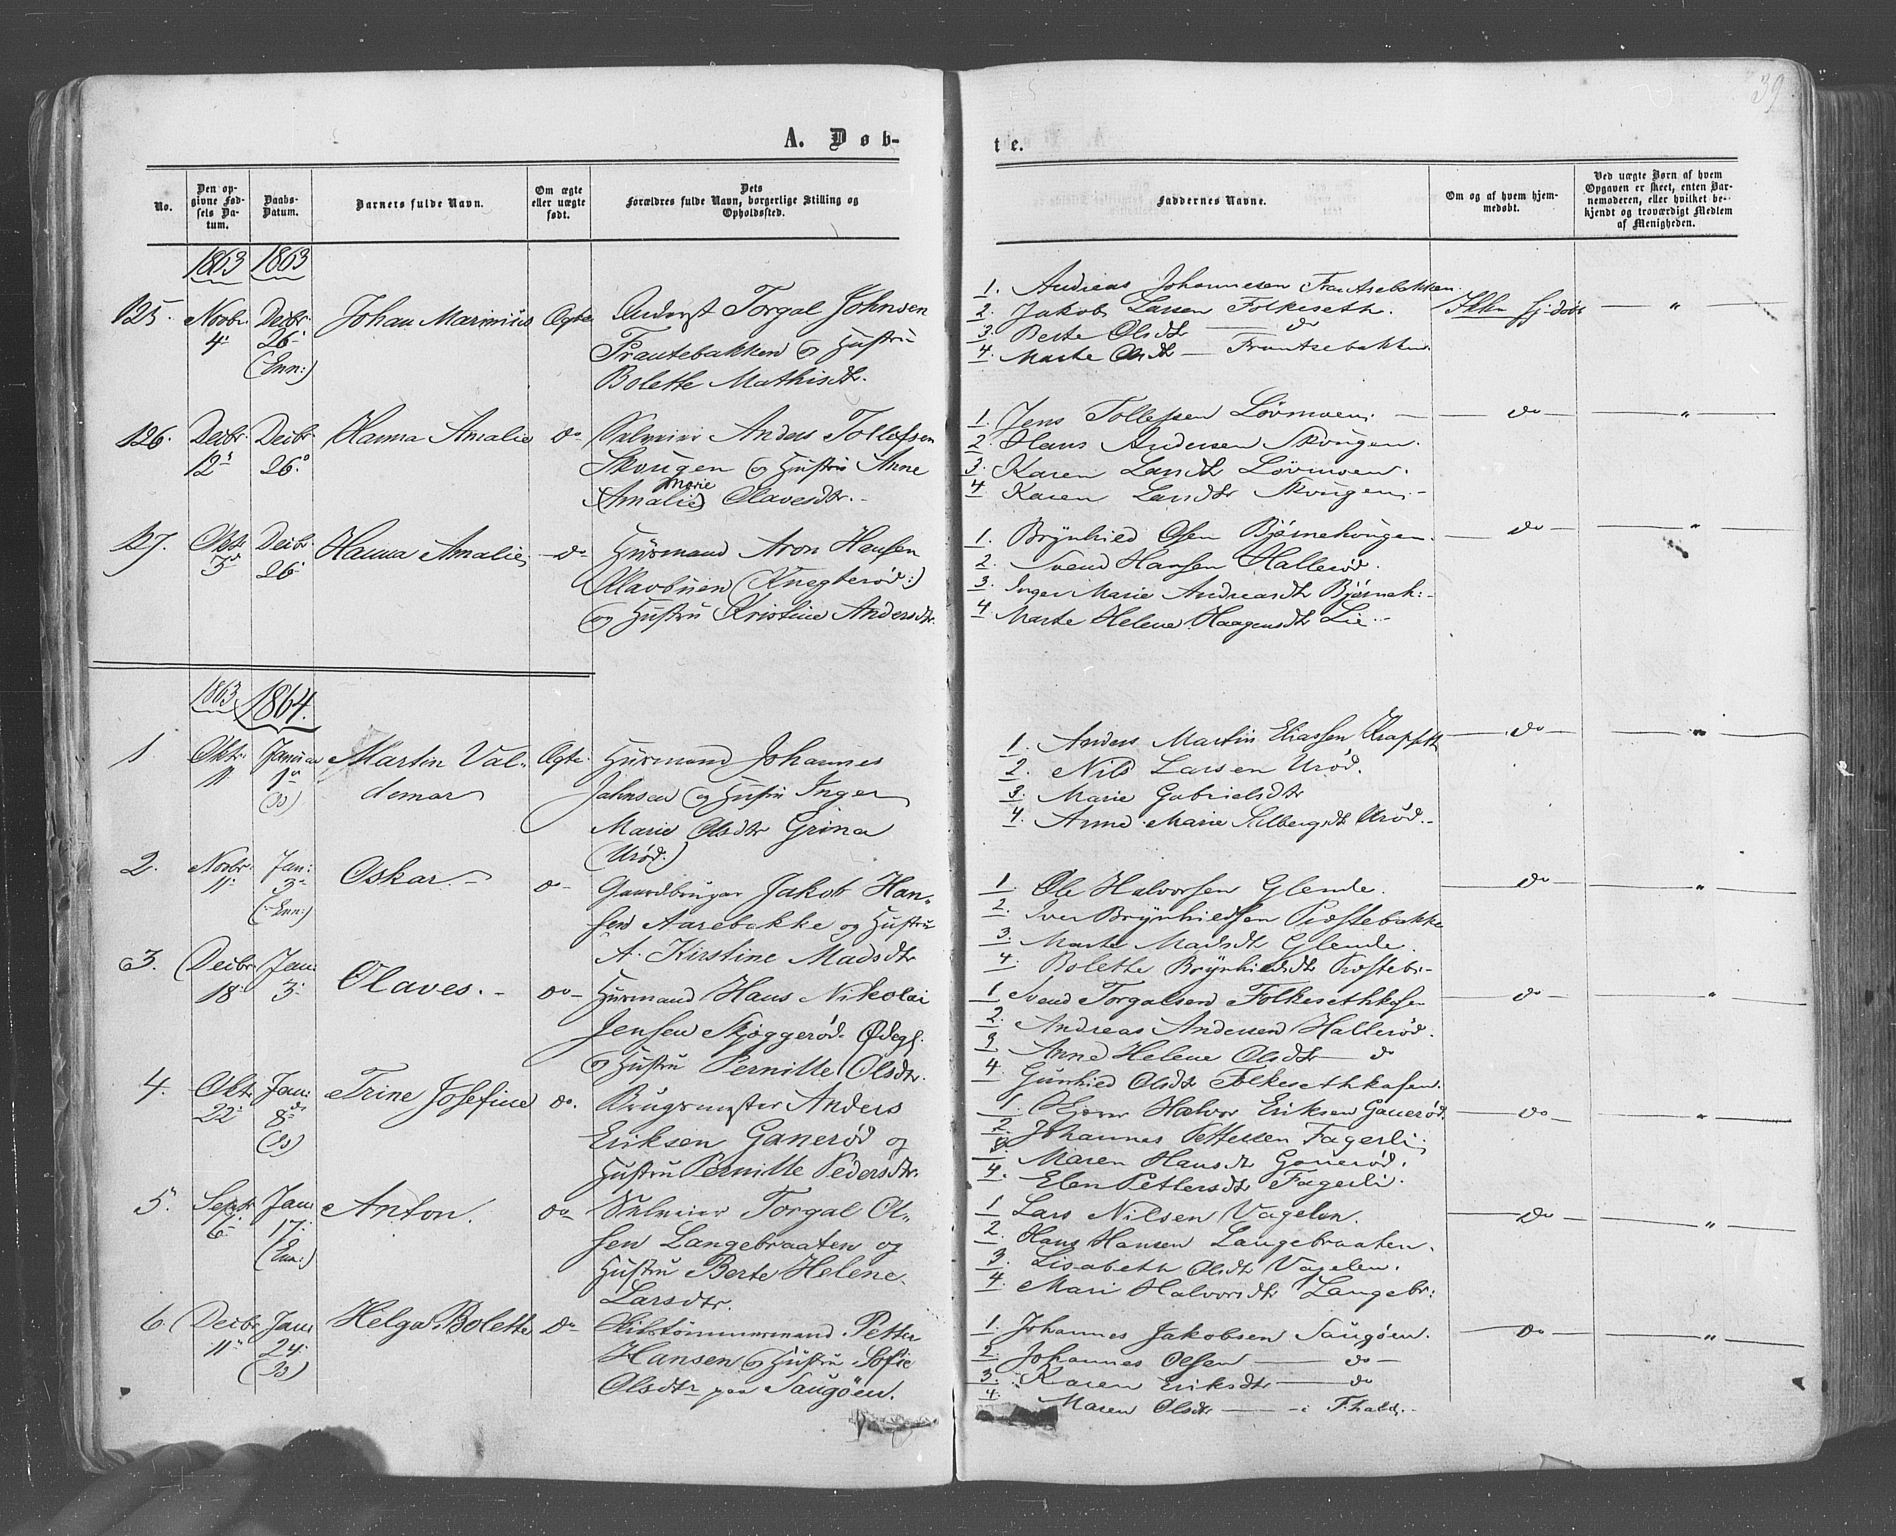 39
A. Døb-
te.
No.
Den opgivne Fødsels Datum.
Daabs-Datum.
Barnets fulde Navn.
Om ægte eller uægte født.
Dets Forældres fulde Navn, borgerlige Stilling og Opholdssted.
Faddernes Navne.
Om og af hvem hjemmedøbt.
Ved uægte Børn af hvem Opgaven er skeet, enten Barnemoderen, eller hvilket bekjendt og troværdigt Medlem af Menigheden.
1863 1863
125. Novbr. Decbr. Johan Marinius Ægte Torgal Johnsen
4. 26. Frantsebakken og Hustru
(Enn:) Bolette Mathisdtr.
1. Andreas Johannesen Frantsebakken.
2. Jakob Larsen Folkeseth. Ikke hj.døbt "
3. Berte Olsdtr do
4. Marte Olsdtr Frantsebakken
126. Decbr. Decbr. Hanna Amalie do Anders Tollefsen
12. 26. Skougen og Hustru Anne
Marie
(Amalie) Olavesdtr.
1. Jens Tollefsen Lövmoen. do "
2. Hans Andersen Skougen.
3. Karen Larsdtr Lövmoen.
4 Karen Larsdtr Skougen.
127. Oktr. Decbr. Hanna Amalie do Husmand Aron Hansen
5 26. (Knegterød:)
og Hustru Kristine Andersdtr.
1. Brynhild Olsen Bjørnehougen. do "
2. Svend Hansen Hallerød.
3. Inger Marie Andreasdtr Bjørneh:
4. Marte Helene Haagensdtr Lie.
1863 1864.
1 Oktr. Januar Martin Val- Ægte. Husmand Johannes
11 1 demar Johnsen og Hustru Inger
Marie Olsdtr Grina
(Urød.)
1. Anders Martin Eliassen do "
2. Nils Larsen Urød.
3. Marie Gabrielsdtr
4. Anne Marie Urød.
2. Novbr. Jan: Oskar. do Gaardbruger Jakob Han-
11. 3. sen Aarebakke og Hustru
(Enn:) A. Kirstine Madsdtr
1. Ole Halvorsen Glende. do "
2. Iver Brynhildsen Præstebakke
3. Marte Madsdtr Glende.
4. Bolette Brynhildsdtr Præsteb:
3. Decbr. Jan: Olaves. do Husmand Hans Nikolai
18 3. Jensen Skjøggerød Ødeg.
og Hustru Pernille Olsdtr.
1 Svend Torgalsen Folkeseth do "
2. Andreas Andersen Hallerød.
3. Anne Helene Olsdtr do
4. Gunhild Olsdtr Folkeseth
4. Oktr. Jan: Trine Josefine do. Brugsmester Anders
22. 8 Eriksen Ganerød og
Hustru Pernille Pedersdtr.
1. Halvor Eriksen Ganerød. do "
2. Johannes Pettersen Fagerli.
3. Maren Hansdtr Ganerød.
4. Elen Pettersdtr Fagerli.
5. Septr. Jan: Anton. do Torgal Ol-
6. 17. sen Langebraaten og
(Enn:) Hustru Berte Helene
Larsdtr.
1 Lars Nilsen Vagelen. do "
2. Hans Hansen Langebraaten.
3. Lisabeth Olsdtr Vagelen.
4. Mari Halvorsdtr Langebr:
6. Decbr. Jan: Helga Bolette do Petter
11. 24. Hansen og Hustru Sofie
Olsdtr paa Saugøen.
1. Johannes Jakobsen Saugøen. do "
2. Johannes Olsen do
3. Karen Eriksdtr do
4. Maren Olsdtr i Fhald.